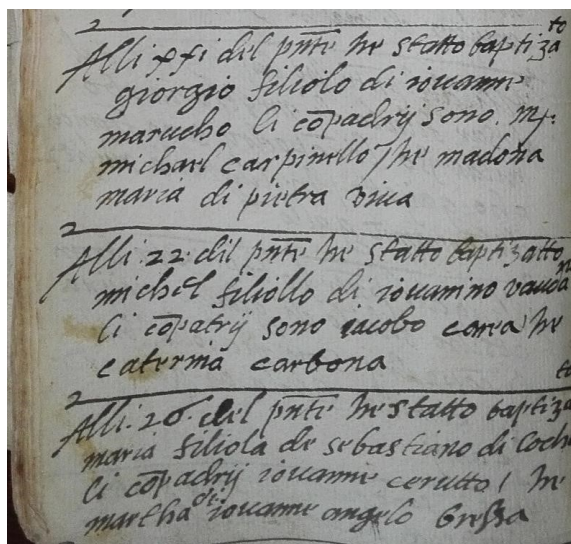 2
Alli xxi del pnte he statto baptizato
giorgio filiolo di iouanne
marucho li cōpadrij sono. mr:
michael carpinello / he madona
maria di pietra viua
2
Alli .22. dil pnte he statto baptizatto
michel filiollo di iouanino
li cōpatrij sono iacobo carea he
caterina carbona
2
Alli .26. del pnte he statto baptizato
maria filiola de sebastiano di
li cōpadrij iouanne cerutto / he
martha de iouanne angelo bressa